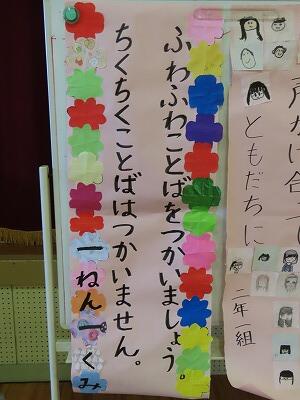 声かけ合って
ともだちに
二年一組
ふわふわことばをつかいましょう。
ちくちくことばはつかいません。
一ねん一くみ